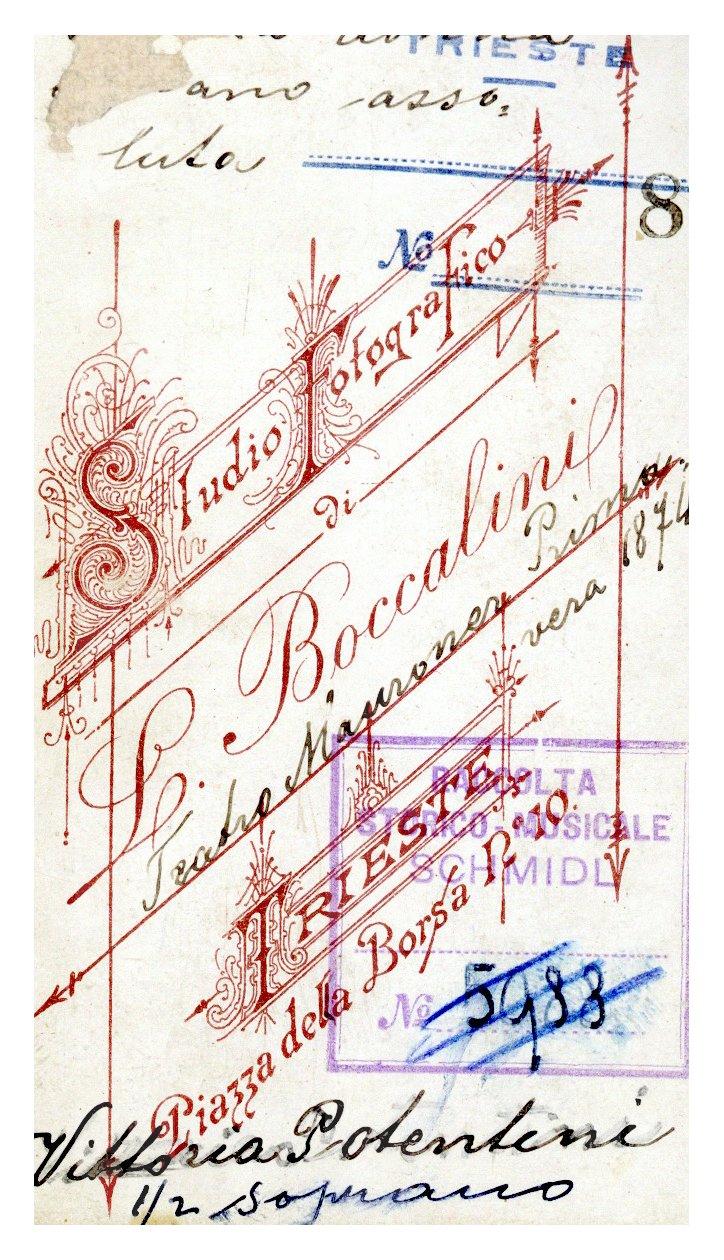 TRIESTE
ano asso-
luta
8
No
Studio Fotografico
di
L. Boccalini
Prima-
vera 1874
Teatro Mauroner
TRIESTE
Piazza della Borsa No 10.
RACCOLTA
STORICO-MUSICALE
SCHMIDL
No 5983
Vittoria Potentini
1/2 soprano